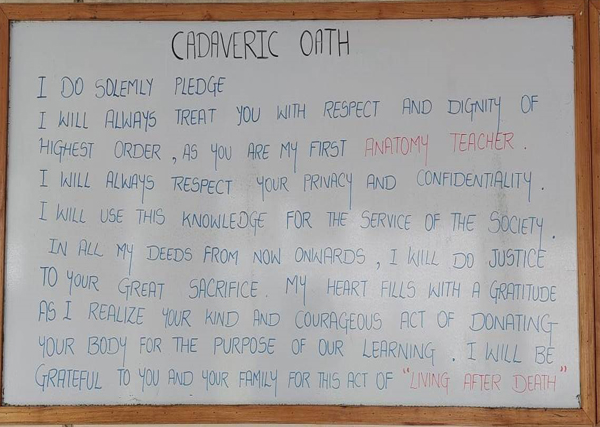 CADAVERIC OATH
I DO SOLEMLY PLEDGE
I WILL ALWAYS TREAT YOU WITH RESPECT AND DIGNITY OF
HIGHEST ORDER, AS YOU ARE MY FIRST ANATOMY TEACHER.
I WILL ALWAYS RESPECT YOUR PRIVACY AND CONFIDENTIALITY.
I WILL USE THIS KNOWLEDGE FOR THE SERVICE OF THE SOCIETY.
IN ALL MY DEEDS FROM NOW ONWARDS, I WILL DO JUSTICE
TO YOUR GREAT SACRIFICE. MY HEART FILLS WITH A GRATITUDE
AS I REALIZE YOUR KIND AND COURAGEOUS ACT OF DONATING
YOUR BODY FOR THE PURPOSE OF OUR LEARNING. I WILL BE
GRATEFUL TO YOU AND YOUR FAMILY FOR THIS ACT OF "LIVING AFTER DEATH"